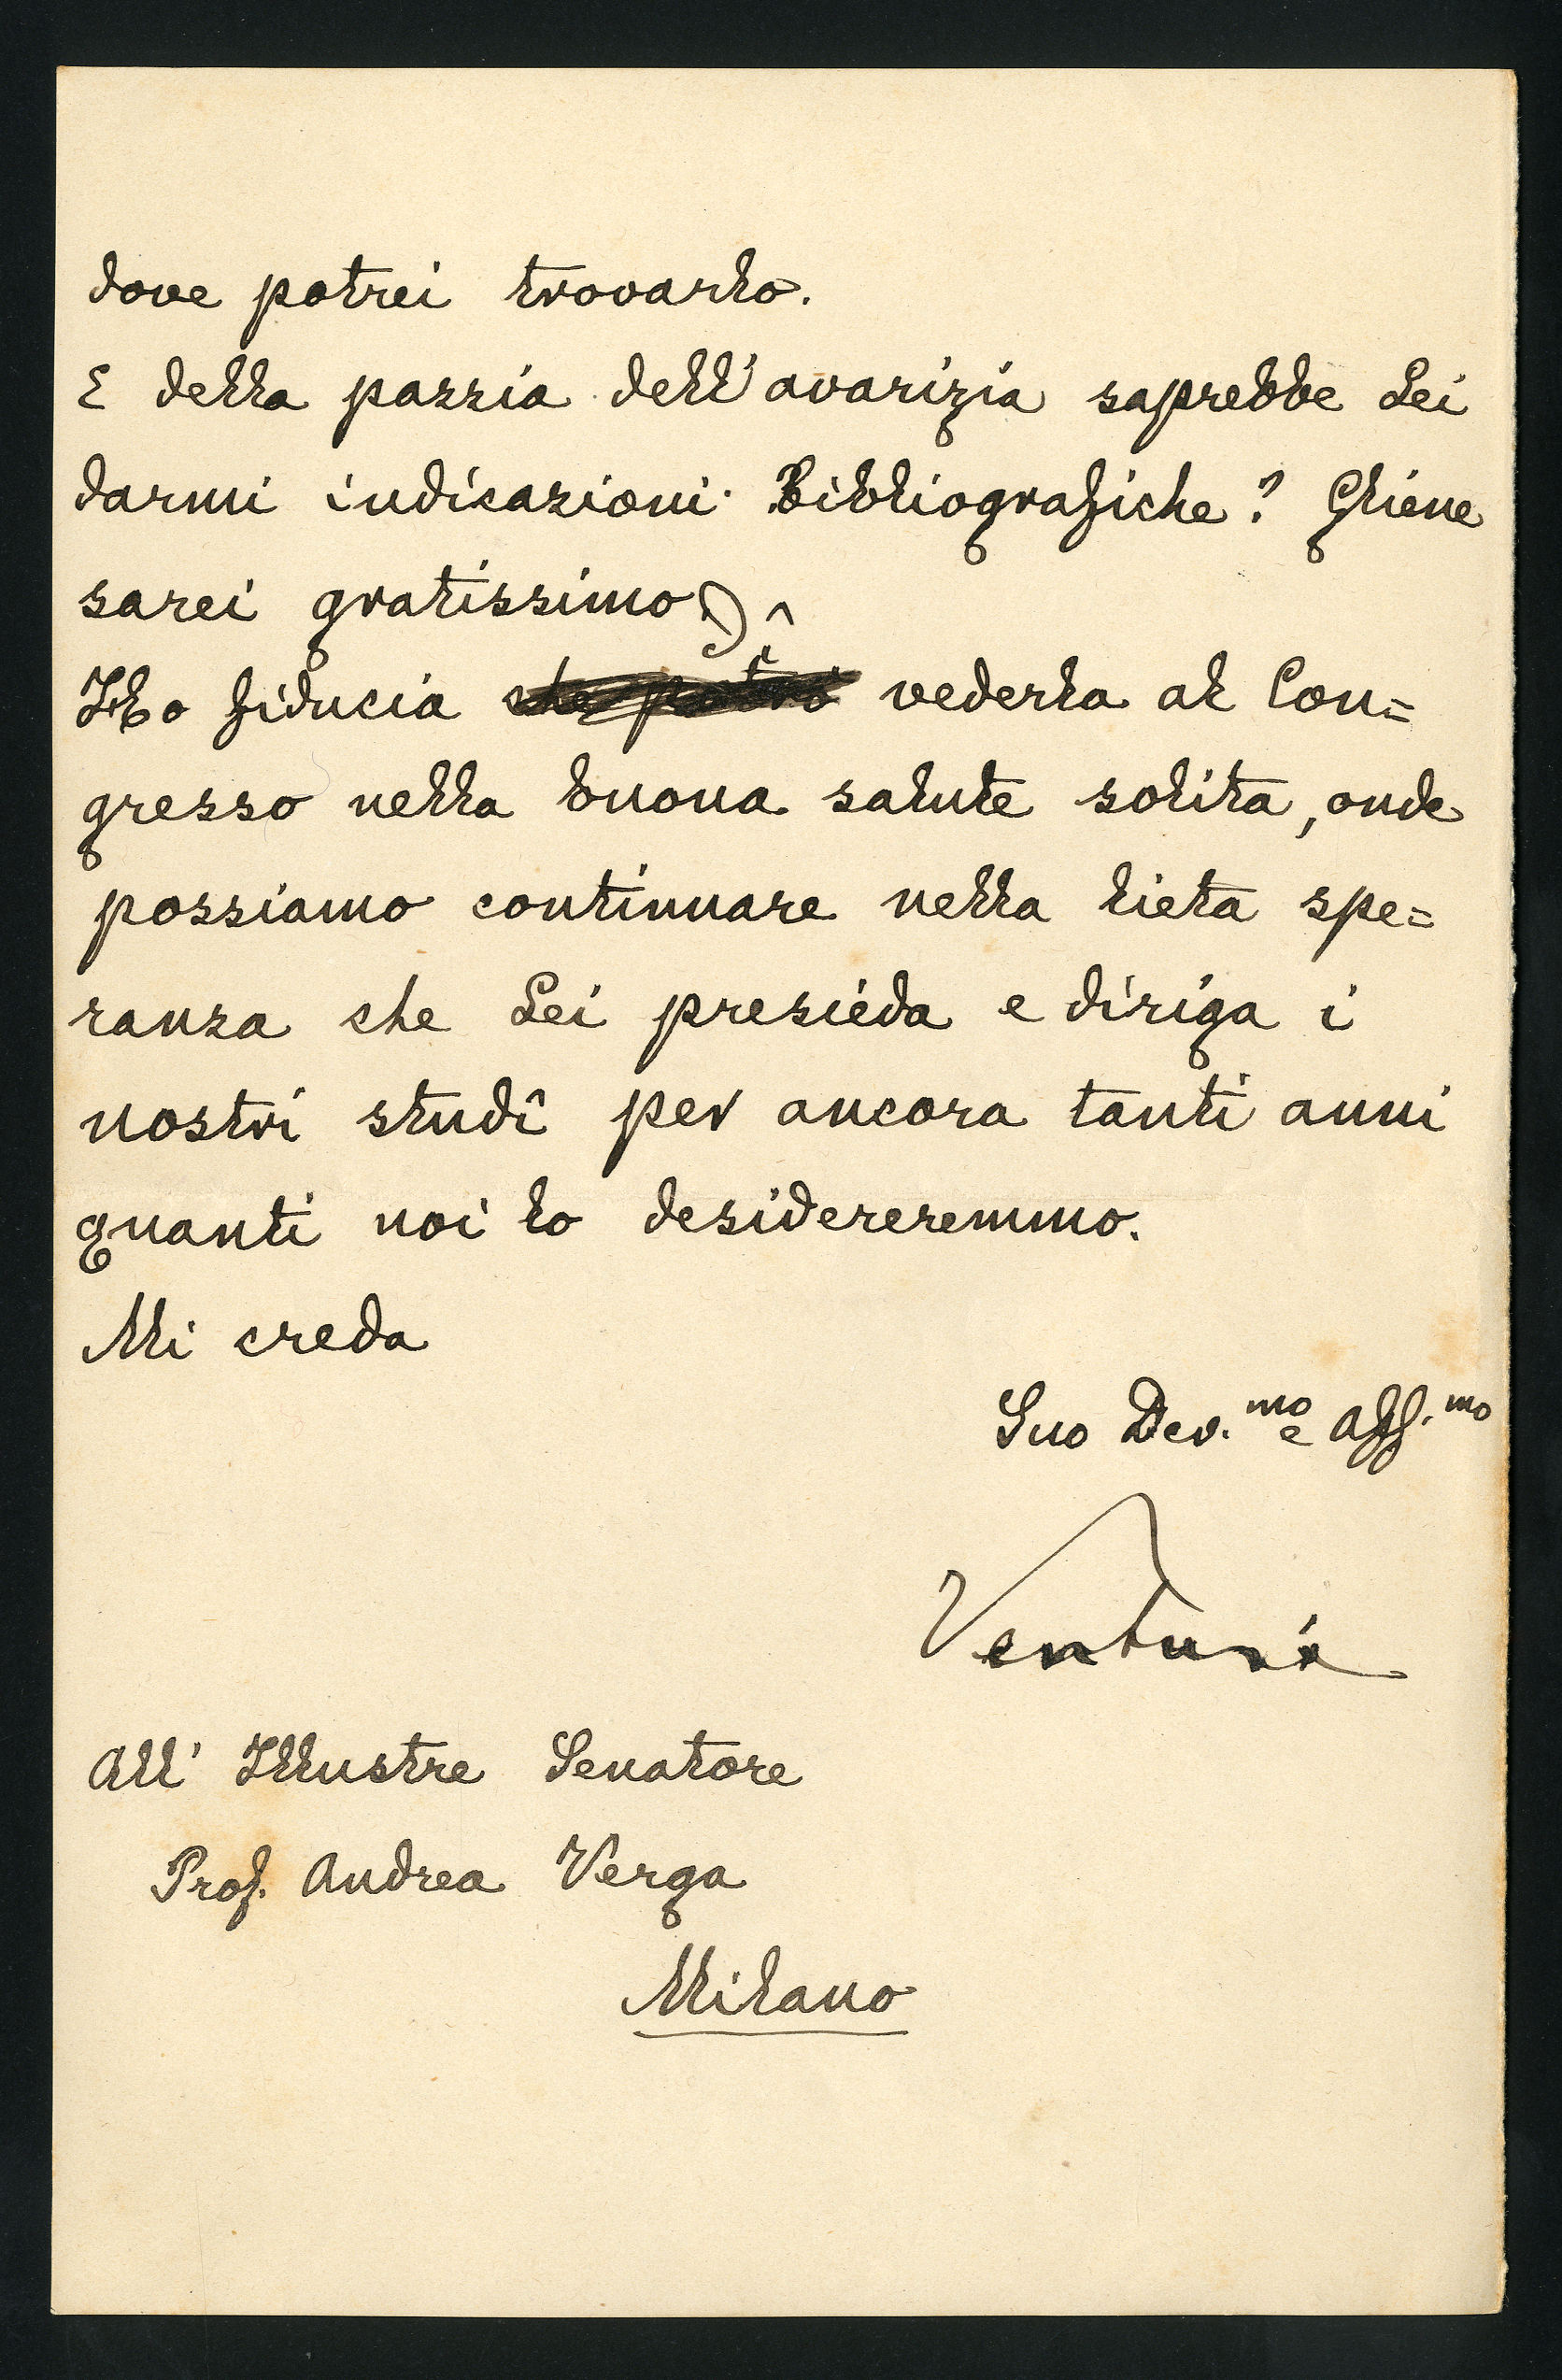 dove potrei trovarlo.
E della pazzia dell'avarizia saprebbe Lei
darmi indicazioni Bibliografiche? Gliene
sarei gratissimo.
Ho fiducia che potrò vederla al Con=
gresso nella buona salute solita, onde
possiamo continuare nella lieta spe=
ranza che Lei presieda e diriga i
nostri studî per ancora tanti anni
quanti noi lo desidereremmo.
Mi creda
Suo Dev.mo e Aff.mo
Venturi
All' Illustre Senatore
Prof. Andrea Verga
Milano